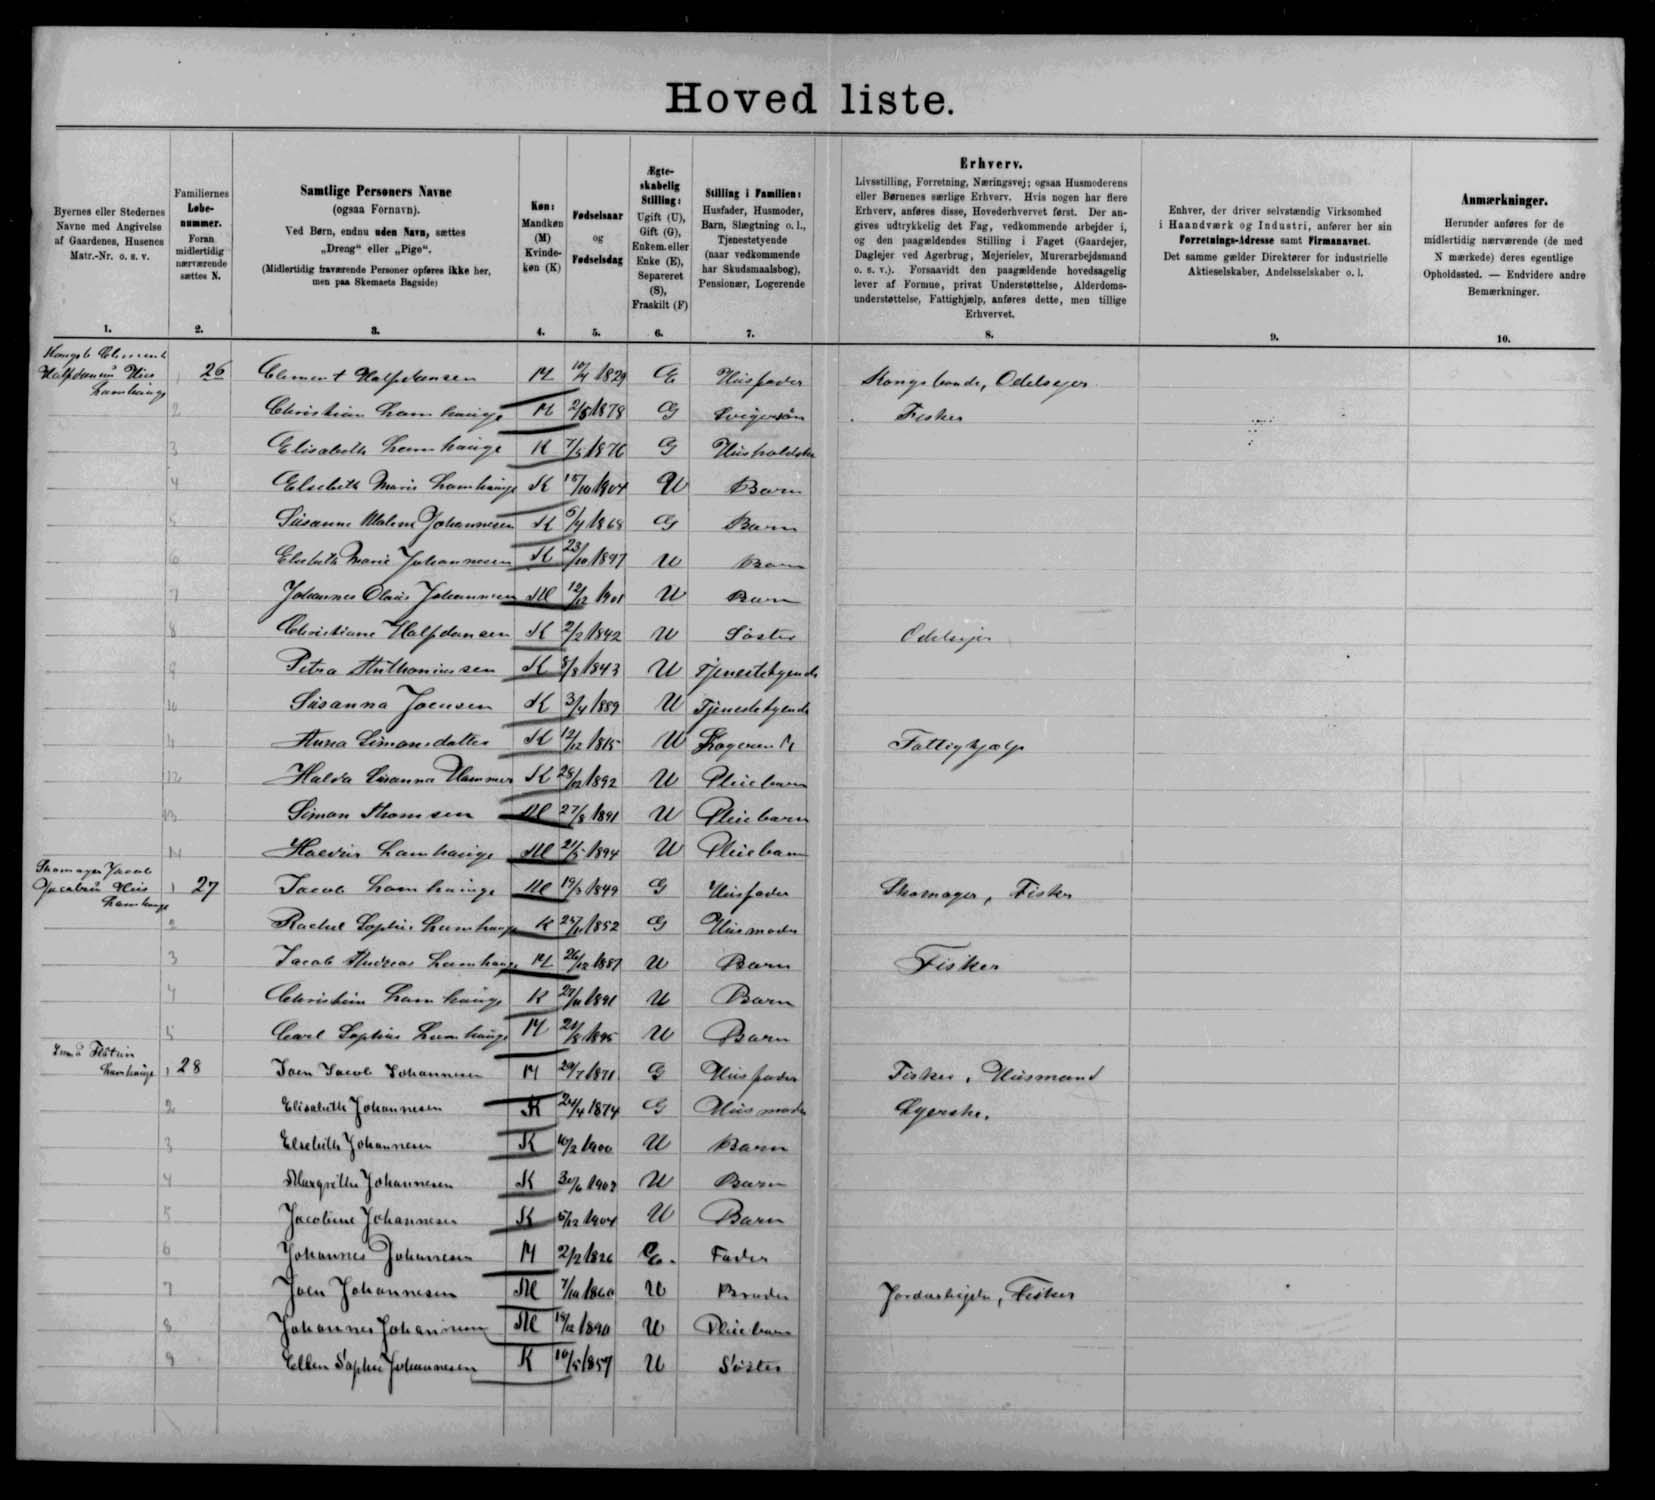 Hoved liste.
Byernes eller Stedernes
Navne med Angivelse
af Gaardenes, Husenes
Matr.-Nr. o. s. v.
1.
Familiernes
Løbe-
nummer.
Foran
midlertidig
nærværende
sættes N.
2.
Samtlige Personers Navne
(ogsaa Fornavn).
Ved Børn, endnu uden Navn, sættes
„Dreng“ eller „Pige“.
(Midlertidig fraværende Personer opføres ikke her,
men paa Skemaets Bagside)
3.
Køn:
Mandkøn
(M)
Kvinde-
køn (K)
4.
Fødselsaar
og
Fødselsdag
5.
Ægte-
skabelig
Stilling:
Ugift (U),
Gift (G),
Enkem. eller
Enke (E),
Separeret
(S),
Fraskilt (F)
6.
Stilling i Familien:
Husfader, Husmoder,
Barn, Slægtning o. l.,
Tjenestetyende
(naar vedkommende
har Skudsmaalsbog),
Pensionær, Logerende
7.
Erhverv.
Livsstilling, Forretning, Næringsvej; ogsaa Husmoderens
eller Børnenes særlige Erhverv. Hvis nogen har flere
Erhverv, anføres disse, Hovederhvervet først. Der an-
gives udtrykkelig det Fag, vedkommende arbejder i,
og den paagældendes Stilling i Faget (Gaardejer,
Daglejer ved Agerbrug, Mejerielev, Murerarbejdsmand
o. s. v.). Forsaavidt den paagældende hovedsagelig
lever af Formue, privat Understøttelse, Alderdoms-
understøttelse, Fattighjælp, anføres dette, men tillige
Erhvervet.
8.
Enhver, der driver selvstændig Virksomhed
i Haandværk og Industri, anfører her sin
Forretnings-Adresse samt Firmanavnet.
Det samme gælder Direktører for industrielle
Aktieselskaber, Andelsselskaber o. l.
9.
Anmærkninger.
Herunder anføres for de
midlertidig nærværende (de med
N mærkede) deres egentlige
Opholdssted. — Endvidere andre
Bemærkninger.
10.
Kongsb Clement
Halfdansens Hus
Lamhauge
1 26 Clement Halfdansen M 10/4 1829 E Husfader Kongsbonde, Odelsejer
2 Christian Lamhauge M 2/8 1878 G Svigersøn Fisker
3 Elisabeth Lamhauge K 7/5 1876 G Husholdske
4 Elsebeth Marie Lamhauge K 15/10 1904 U Barn
5 Susanne Malene Johannesen K 5/4 1868 G Barn
6 Elsebeth Marie Johannesen K 23/10 1897 U Barn
7 Johannes Olaus Johannesen M 12/12 1901 U Barn
8 Christiane Halfdansen K 2/2 1842 U Søster Odelsejer
9 Petra Anthoniussen K 8/8 1843 U Tjenestetyende
10 Susanna Joensen K 3/4 1889 U Tjenestetyende
11 Anna Simonsdatter K 12/12 1815 U Fattighjælp
12 Halda Susanna Hammer K 28/12 1892 U Pleiebarn
13 Simon Thomsen M 27/8 1891 U Pleiebarn
14 Lamhauge M 21/5 1894 U Pleiebarn
Skomager Jacob
Jacobsens Hus
Lamhauge
1 27 Jacob Lamhauge M 19/3 1849 G Husfader Skomager, Fisker
2 Rachel Sophie Lamhauge K 1852 G Husmoder
3 Jacob Andreas Lamhauge M 26/12 1887 U Barn Fisker
4 Lamhauge K 27/11 1891 U Barn
5 Carl Sophus Lamhauge M 21/8 1895 U Barn
Lamhauge
1 28 Joen Jacob Johannesen M 20/7 1871 G Husfader Fisker, Husmand
2 Elisabeth Johannesen K 24/4 1874 G Husmoder
3 Elsebeth Johannesen K 10/2 1900 U Barn
4 Margrethe Johannesen K 30/6 1902 U Barn
5 Jacobine Johannesen K 5/12 1904 U Barn
6 Johannes Johannesen M 2/2 1826 E. Fader
7 Joen Johannesen M 7/10 1860 U Broder Fisker
8 Johannes Johannesen M 19/12 1890 U Pleiebarn
9 Ellen Sophie Johannesen K 10/5 1857 U Søster